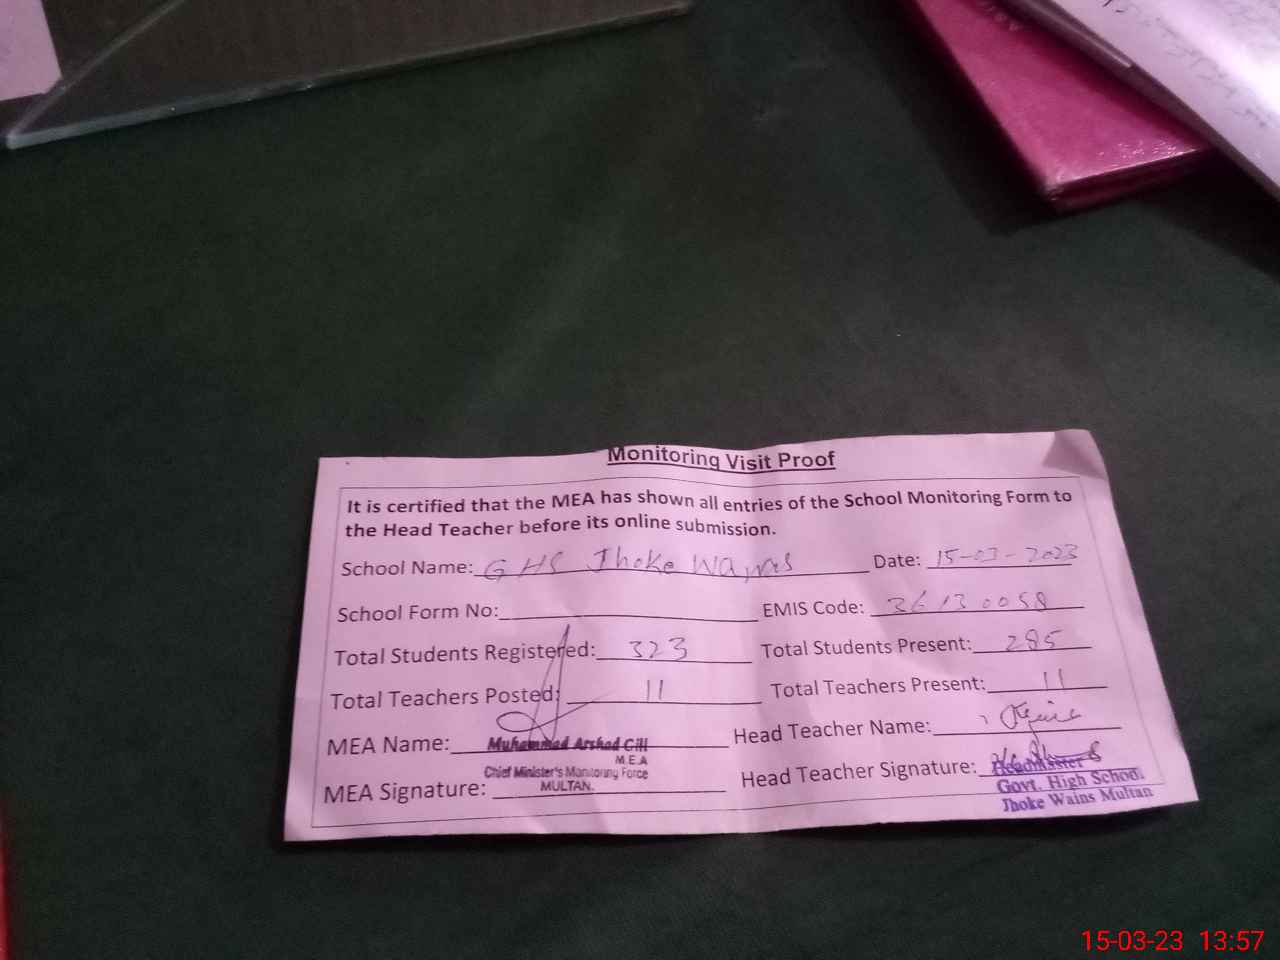 Monitoring Visit Proof
It is certified that the MEA has shown all entries of the School Monitoring Form to
the Head Teacher before its online submission.
School Name: GHS Jhoke Wains Date: 15-03-2023
School Form No: EMIS Code: 36130058
Total Students Registered: 323 Total Students Present: 285
Total Teachers Posted: 11 Total Teachers Present: 11
MEA Name: Muhammad Arshad Gill Head Teacher Name:
M.E.A
Chief Minister's Monitoring Force
MULTAN.
MEA Signature: Head Teacher Signature:
Headmaster
Govt. High School
Jhoke Wains Multan
15-03-23 13:57